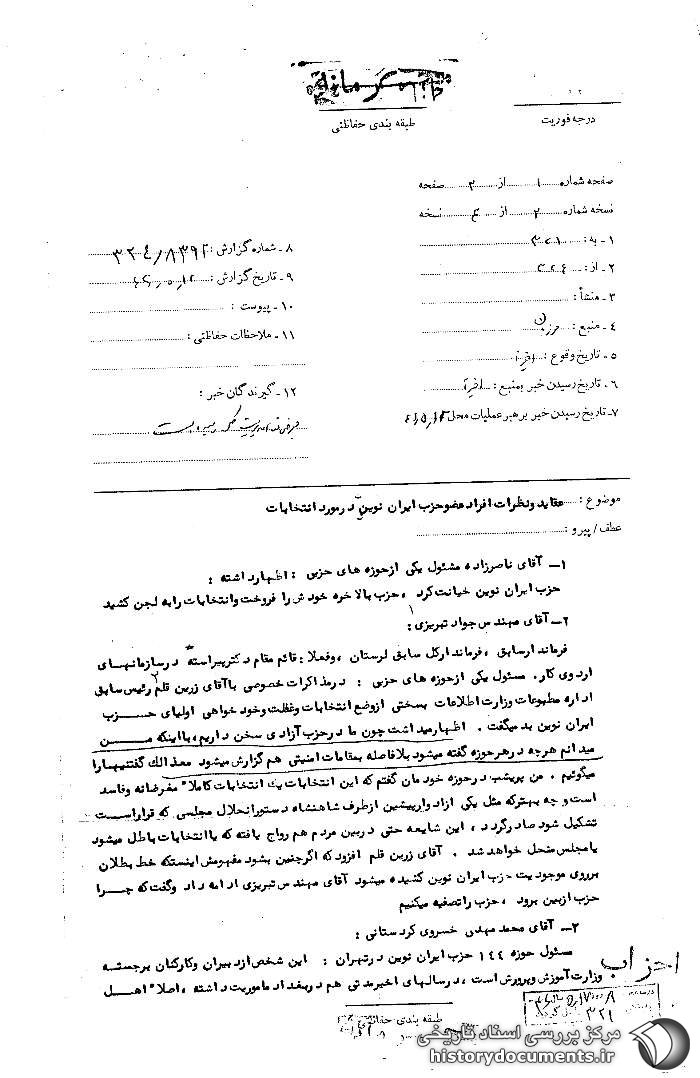 درجه فوریت
طبقه بندی حفاظتی
صفحه شماره ۱ از ۳ صفحه
نسخه شماره ۲ از ۴ نسخه
۱ـ به : ۳۲۱
۲ـ از :
۳ـ منشأ :
۴ـ منبع :
۵ـ تاریخ وقوع : اخیراً
۶ـ تاریخ رسیدن خبر بمنبع : اخیراً
۷ـ تاریخ رسیدن خبر برهبر عملیات محل
۸ـ شماره گزارش :
۹ـ تاریخ گزارش :
۱۰ـ پیوست :
۱۱ـ ملاحظات حفاظتی :
۱۲ـ گیرندگان خبر :
موضوع : عقاید ونظرات افراد عضوحزب ایران نوین درمورد انتخابات
عطف / پیرو :
۱ـ آقای ناصرزاده مسئول یکی ازحوزه های حزبی : اظهارداشته :
حزب ایران نوین خیانت کرد ، حزب بالاخره خودش را فروخت وانتخابات رابه لجن کشید
۲ـ آقای مهندس جواد تبریزی :
فرماندارسابق ، فرماندارکل سابق لرستان ، وفعلا : قائم مقام دکترپیراسته درسازمانهای
اردوی کار، مسئول یکی ازحوزه های حزبی : درمذاکرات خصوصی باآقای زرین قلم رئیس سابق
اداره مطبوعات وزارت اطلاعات بسختی ازوضع انتخابات وغفلت وخود خواهی اولیای حزب
ایران نوین بد میگفت . اظهارمیداشت چون ما درحزب آزادی سخن داریم ، بااینکه من
میدانم هرچه درهرحوزه گفته میشود بلافاصله بمقامات امنیتی هم گزارش میشود معذالک گفتنیهارا
میگوئیم . من پریشب درحوزه خودمان گفتم که این انتخابات یک انتخابات کاملا" مغرضانه وفاسد
است وچه بهترکه مثل یکی ازادوارپیشین ازطرف شاهنشاه دستورانحلال مجلسی که قراراست
تشکیل شود صادرگردد ، این شایعه حتی دربین مردم هم رواج یافته که یاانتخابات باطل میشود
یامجلس منحل خواهد شد . آقای زرین قلم افزود که اگرچنین بشود مفهومش اینستکه خط بطلان
برروی موجودیت حزب ایران نوین کشیده میشود آقای مهندس تبریزی ادامه داد وگفت که چرا
حزب ازبین برود ، حزب راتصفیه میکنیم
۳ـ آقای محمد مهدی خسروی کردستانی :
مسئول حوزه ۱۴۴ حزب ایران نوین درتهران : این شخص ازدبیران وکارکنان برجسته
وزارت آموزش وپرورش است ، درسالهای اخیرمدتی هم دربغداد ماموریت داشته ، اصلا" اهل
احزاب
۳۲۱
طبقه بندی حفاظتی
مرکز بررسی اسناد تاریخی
historydocuments.ir